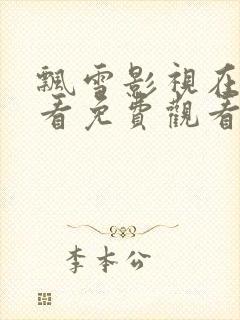 飄雪影視在
看免費觀看
李本公